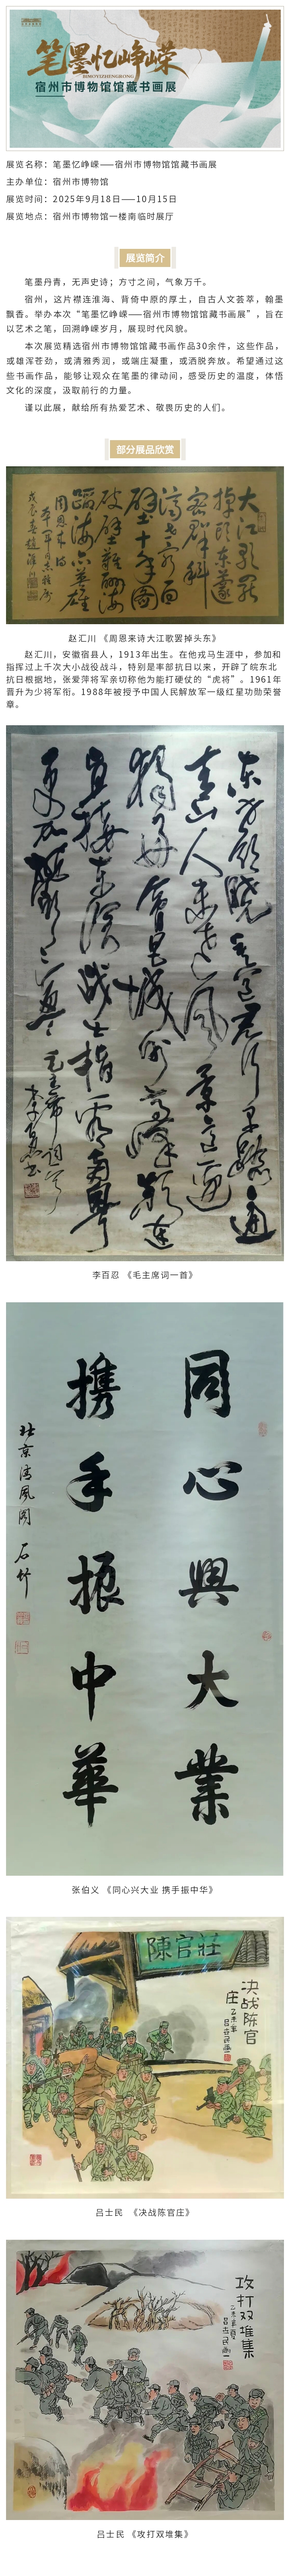 笔墨忆峥嵘
BIMOYIZHENGRONG
宿州市博物馆馆藏书画展
展览名称：笔墨忆峥嵘——宿州市博物馆馆藏书画展
主办单位：宿州市博物馆
展览时间：2025年9月18日——10月15日
展览地点：宿州市博物馆一楼南临时展厅
展览简介
笔墨丹青，无声史诗；方寸之间，气象万千。
宿州，这片襟连淮海、背倚中原的厚土，自古人文荟萃，翰墨
飘香。举办本次“笔墨忆峥嵘——宿州市博物馆馆藏书画展”，旨在
以艺术之笔，回溯峥嵘岁月，展现时代风貌。
本次展览精选宿州市博物馆馆藏书画作品30余件，这些作品，
或雄浑苍劲，或清雅秀润，或端庄凝重，或洒脱奔放。希望通过这
些书画作品，能够让观众在笔墨的律动间，感受历史的温度，体悟
文化的深度，汲取前行的力量。
谨以此展，献给所有热爱艺术、敬畏历史的人们。
部分展品欣赏
大江歌罢
掉头东邃
密群科
济世穷面
壁十年图
破壁难酬
蹈海亦英雄
周恩来诗
赵汇川 《周恩来诗大江歌罢掉头东》
赵汇川，安徽宿县人，1913年出生。在他戎马生涯中，参加和
指挥过上千次大小战役战斗，特别是率部抗日以来，开辟了皖东北
抗日根据地，张爱萍将军亲切称他为能打硬仗的“虎将”。1961年
晋升为少将军衔。1988年被授予中国人民解放军一级红星功勋荣誉
章。
东方欲晓莫道君行早踏遍
青山人未老风景这边
独好会昌城外高峰颠连
直接东溟战士指看南粤
更加郁郁葱葱 毛主席词一首
李百忍书
李百忍 《毛主席词一首》
同心兴大業
携手振中華
北京清風阁 石竹
张伯义 《同心兴大业 携手振中华》
陳官莊
决战陈官
庄
吕士民 《决战陈官庄》
攻打双堆集
吕士民 《攻打双堆集》